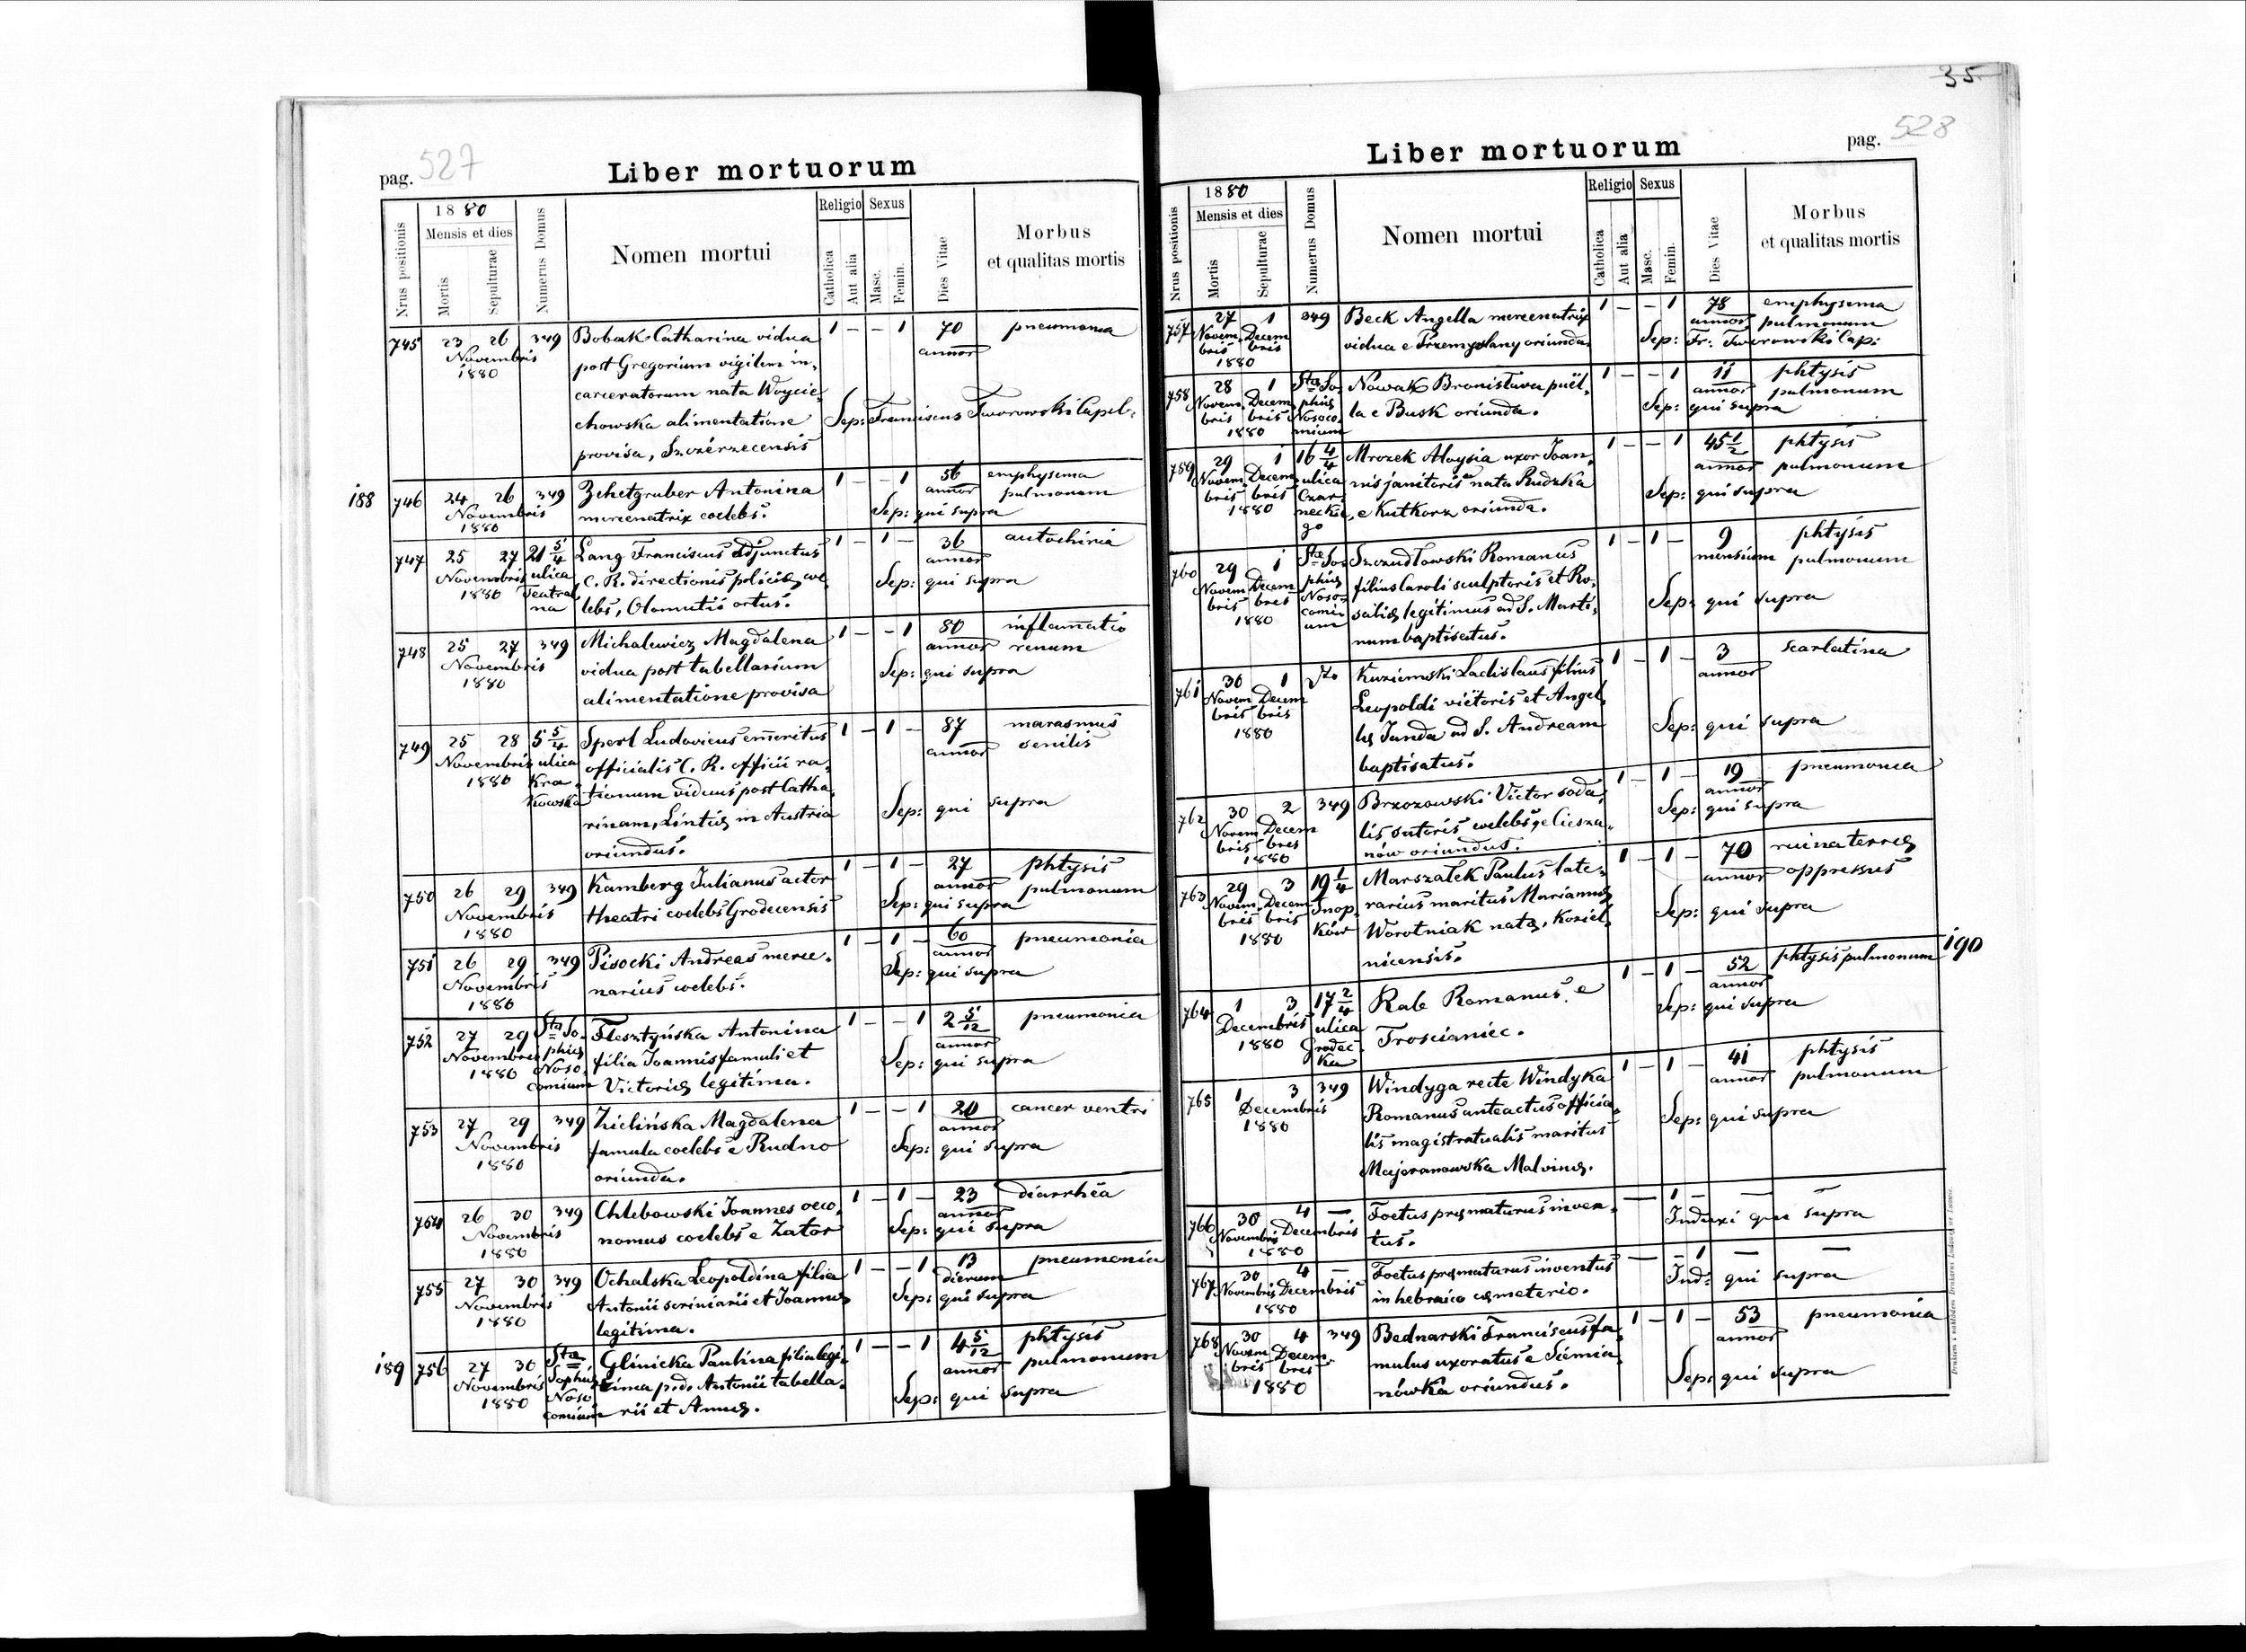 35
pag. 527
Liber mortuorum
Nrus positionis
1880
Mensis et dies
Mortis
Sepulturae
Numerus Domus
Nomen mortui
Religio
Catholica
Aut alia
Sexus
Masc.
Femin.
Dies Vitae
Morbus
et qualitas mortis
745 23 26 349 Bobak Catharina vidua 1 – – 1 70 pneumonia
Novembris post Gregorium vigilem in- annor
1880 carceratorum nata Woycie-
chowska alimentatione Sep: Franciscus Tworowski Capel:
provisa, Szczérzecensis
188 746 24 26 349 Zehetgruber Antonina 1 – – 1 56 emphysema
Novembris mercenatrix coelebs. annor pulmonum
1880 Sep: qui supra
747 25 27 21 5/4 Lang Franciscus adjunctus 1 – 1 – 36 autochiria
Novembris ulica C. R. directionis policiæ, coe annor
1880 Teatral lebs, Olomutis ortus. Sep: qui supra
na
748 25 27 349 Michalewicz Magdalena 1 – – 1 80 inflamatio
Novembris vidua post tabellarium annor renum
1880 alimentatione provisa Sep: qui supra
749 25 28 5 5/4 Sperl Ludovicus emeritus 1 – 1 – 87 marasmus
Novembris ulica officialis C. R. officii ra- annor senilis
1880 Kra- tionum viduus post Catha-
kowska rinam, Lintiæ in Austria Sep: qui supra
oriundus.
750 26 29 349 Kamberg Julianus actor 1 – 1 – 27 phtysis
Novembris theatri coelebs Grodecensis annor pulmonum
1880 Sep: qui supra
751 26 29 349 Pisocki Andreas merce- 1 – 1 – 60 pneumonia
Novembris narius coelebs. annor
1880 Sep: qui supra
752 27 29 Sta So- Flesztyńska Antonina 1 – – 1 2 5/12 pneumonia
Novembris phiæ filia Joannis famuli et annor
1880 Noso- Victoriæ legitima. Sep: qui supra
comium
753 27 29 349 Zielińska Magdalena 1 – – 1 20 cancer ventri
Novembris famula coelebs e Rudno annor
1880 oriunda. Sep: qui supra
754 26 30 349 Chlebowski Joannes oeco- 1 – 1 – 23 diarrhëa
Novembris nomus coelebs e Zator annor
1880 Sep: qui supra
755 27 30 349 Ochalska Leopoldina filia 1 – – 1 13 pneumonia
Novembris Antonii scriniarii et Joannæ dierum
1880 legitima. Sep: qui supra
189 756 27 30 Sta Glinicka Paulina filia legi- 1 – – 1 4 5/12 phtysis
Novembris Sophiæ tima p. d. Antonii tabella- annor pulmonum
1880 Noso rii et Annæ. Sep: qui supra
comium
pag. 528
Liber mortuorum
Nrus positionis
1880
Mensis et dies
Mortis
Sepulturae
Numerus Domus
Nomen mortui
Religio
Catholica
Aut alia
Sexus
Masc.
Femin.
Dies Vitae
Morbus
et qualitas mortis
757 27 1 349 Beck Angella mercenatrix 1 – – 1 78 emphysema
Novem- Decem vidua e Przemyslany oriunda annor pulmonum
bris bris Sep: Fr: Tworowski Cap:
1880
758 28 1 Sta So- Nowak Bronislava puël- 1 – – 1 11 phtysis
Novem- Decem phiæ la e Busk oriunda. annor pulmonum
bris bris Nosoco- Sep: qui supra
1880 mium
759 29 1 16 4/4 Mrozek Aloysia uxor Joan- 1 – – 1 45 1/2 phtysis
Novem- Decem ulica nis janitoris nata Rudzka annor pulmonum
bris bris Czar- e Kutkorz oriunda. Sep: qui supra
1880 neckie
go
760 29 1 Stæ So- Szczudłowski Romanus 1 – 1 – 9 phtysis
Novem Decem phiæ filius Caroli sculptoris et Ro- mensium pulmonum
bris bris Noso- saliæ legitimus ad S. Marti-
1880 comi- num baptisatus. Sep: qui supra
um
761 30 1 Kuziemski Ladislaus filius 1 – 1 – 3 scarlatina
Novem Decem Leopoldi viëtoris et Angel- annor
bris bris læ Janda ad S. Andream
1880 baptisatus. Sep: qui supra
762 30 2 349 Brzozowski Victor soda- 1 – 1 – 19 pneumonia
Novem Decem lis sutoris coelebs, e Cieszа- annor
bris bris nów oriundus. Sep: qui supra
1880
763 29 3 19 1/4 Marszałek Paulus late- 1 – 1 – 70 ruina terræ
Novem- Decem Snop- rarius maritus Mariannæ annor oppressus
bris bris ków Worotniak natæ, Koziel-
1880 nicensis. Sep: qui supra
764 1 3 17 2/4 Rab Romanus e 1 – 1 – 52 phtysis pulmonum 190
Decembris ulica Trościaniec. annor
1880 Gródec- Sep: qui supra
ka
765 1 3 349 Windyga recte Windyka 1 – 1 – 41 phtysis
Decembris Romanus anteactus officia- annor pulmonum
1880 lis magistratualis maritus
Majeranowska Malvinæ. Sep: qui supra
766 30 4 — Foetus præmaturus inven- — 1 – — —
Novembris Decembris tus. Induxi qui supra
1880
767 30 4 — Foetus præmaturus inventus — – 1 — —
Novembris Decembris in hebraico cæmeterio. Ind: qui supra
1880
768 30 4 349 Bednarski Franciscus fa- 1 – 1 – 53 pneumonia
Novem Decem- mulus uxoratus e Siémia- annor
bris bris nówka oriundus. Sep: qui supra
1880